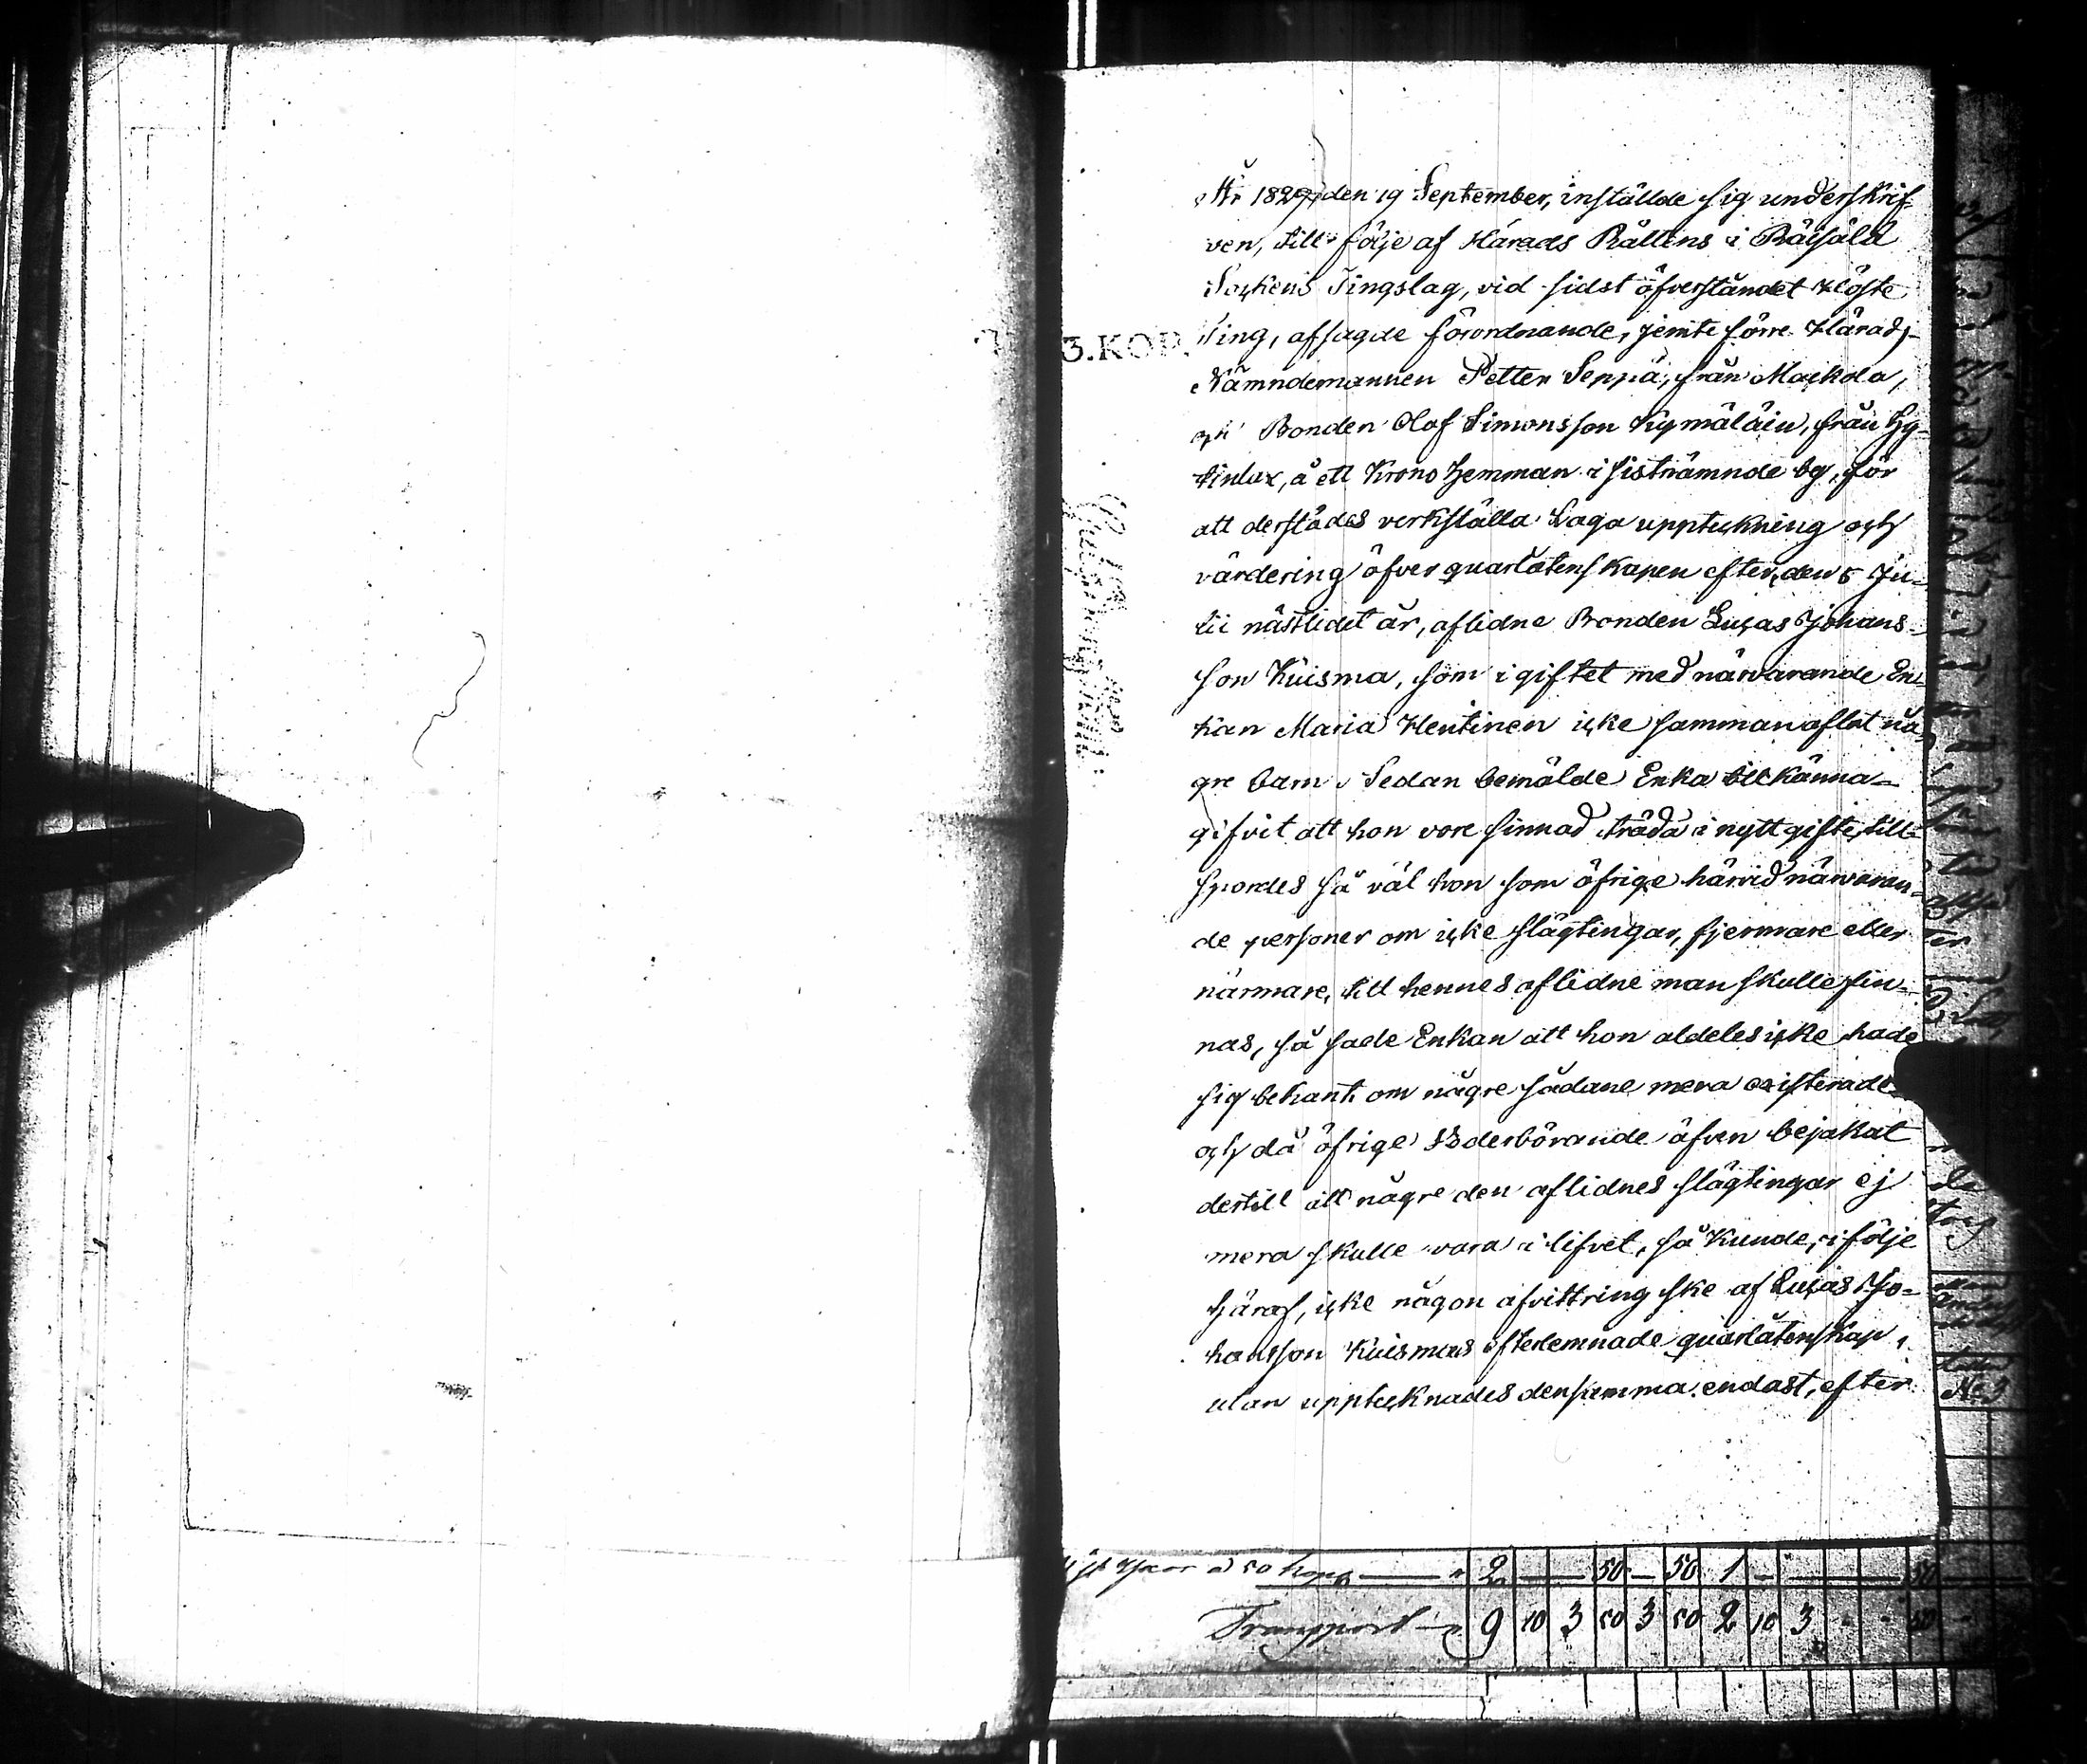 År 1829, den 19 September, inställde sig underskrif-
ven, till följe af Härads Rättens i Räisälä
Sockens Tingslag, vid sidst öfverståndet Höste
Ting, afsagde förordnande, jemte förre Härads-
3.KOP.
Nämndemannen Petter Seppä, från Maikola,
och Bonden Olof Simonsson Kymäläin, från Hy-
tinlax, å ett Krono Hemman i sistnämnde by, för
att derstädes verkställa Laga uppteckning och
värdering öfver quarlåtenskapen efter, den 5 Ju-
lii nästledit år, aflidne Bonden Lucas Johans-
son Kuisma, som i giftet med närvarande En-
kan Maria Hentinen icke sammanaflat nå-
gre barn. Sedan bemälde Enka tillkänna-
gifvit att hon vore sinnad träda i nytt gifte, till-
spordes så väl hon som öfrige härvid närvaran-
de personer om icke slägtingar, fjermare eller
närmare, till hennes aflidne man skulle fin-
nas, så sade Enkan att hon aldeles icke hade
sig bekant om någre sådane mera existerade
och då öfrige Vederbörande äfven bejakat
dertill att någre den aflidnes slägtingar ej
mera skulle vara i lifvet, så kunde, i följe
häraf, icke någon afvittring ske af Lucas Jo-
hansson Kuismas efterlemnade quarlåtenskap,
utan upptecknades densamma endast, efter
à 50 kop 2 — 50 — 50 1 — 50
Transport 9 10 3 50 3 50 2 10 3 50